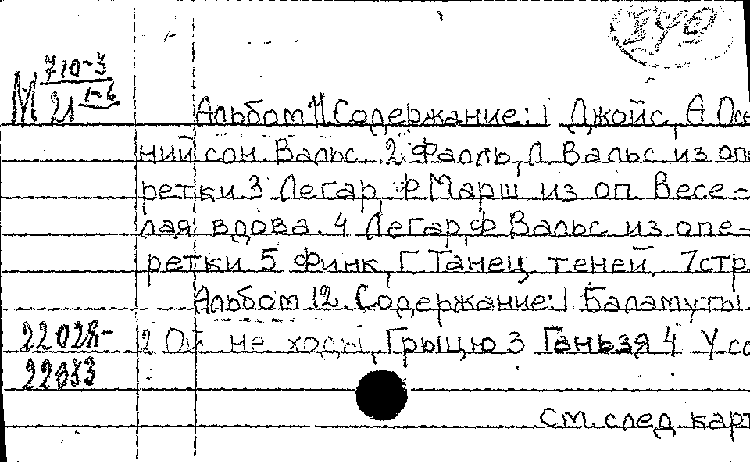 М 710-3
21 1-6
Альбом 11. Содержание: 1 Джойс, А. Осе
ний сон. Вальс. 2. Фалль, Л. Вальс из опе
ретки 3 Легар, Ф Марш из оп. Весе-
лая вдова. 4 Легар, Ф Вальс из опе-
ретки 5 Финк, Г. Танец теней. 7стр
Альбом 12. Содержание: 1 Баламуты
22028-
2 Ой не ходы, Грыцю 3 Ганьзя 4 У со
22033
см. след карт